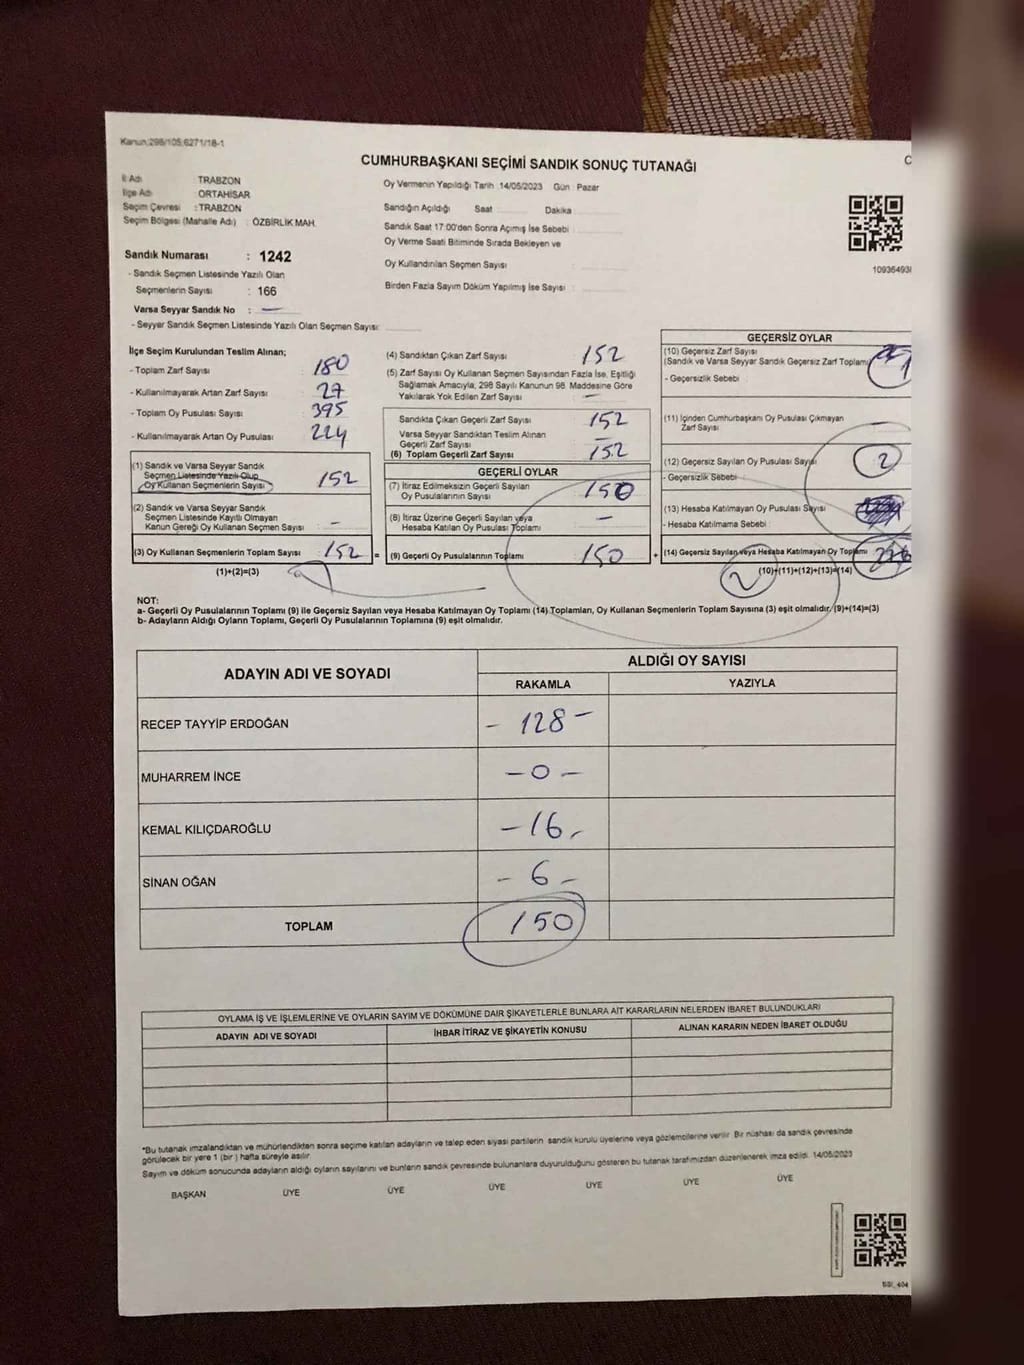 Kanun:298/105,6271/18-1
CUMHURBAŞKANI SEÇİMİ SANDIK SONUÇ TUTANAĞI
İl Adı : TRABZON
İlçe Adı : ORTAHİSAR
Seçim Çevresi : TRABZON
Seçim Bölgesi (Mahalle Adı) : ÖZBİRLİK MAH.
Oy Vermenin Yapıldığı Tarih :14/05/2023 Gün : Pazar
Sandığın Açıldığı Saat Dakika
Sandık Saat 17:00'den Sonra Açımış İse Sebebi :
Oy Verme Saati Bitiminde Sırada Bekleyen ve
Oy Kullandırılan Seçmen Sayısı :
Birden Fazla Sayım Döküm Yapılmış İse Sayısı :
10936493
Sandık Numarası : 1242
- Sandık Seçmen Listesinde Yazılı Olan
Seçmenlerin Sayısı : 166
Varsa Seyyar Sandık No : —
- Seyyar Sandık Seçmen Listesinde Yazılı Olan Seçmen Sayısı:
İlçe Seçim Kurulundan Teslim Alınan;
- Toplam Zarf Sayısı : 180
- Kullanılmayarak Artan Zarf Sayısı : 27
- Toplam Oy Pusulası Sayısı : 395
- Kullanılmayarak Artan Oy Pusulası : 224
(1) Sandık ve Varsa Seyyar Sandık
Seçmen Listesinde Yazılı Olup
Oy Kullanan Seçmenlerin Sayısı : 152
(2) Sandık ve Varsa Seyyar Sandık
Seçmen Listesinde Kayıtlı Olmayan
Kanun Gereği Oy Kullanan Seçmen Sayısı : —
(3) Oy Kullanan Seçmenlerin Toplam Sayısı : 152 =
(1)+(2)=(3)
(4) Sandıktan Çıkan Zarf Sayısı : 152
(5) Zarf Sayısı Oy Kullanan Seçmen Sayısından Fazla İse, Eşitliği
Sağlamak Amacıyla, 298 Sayılı Kanunun 98. Maddesine Göre
Yakılarak Yok Edilen Zarf Sayısı : —
Sandıkta Çıkan Geçerli Zarf Sayısı : 152
Varsa Seyyar Sandıktan Teslim Alınan
Geçerli Zarf Sayısı : —
(6) Toplam Geçerli Zarf Sayısı : 152
GEÇERLİ OYLAR
(7) İtiraz Edilmeksizin Geçerli Sayılan
Oy Pusulalarının Sayısı : 150
(8) İtiraz Üzerine Geçerli Sayılan veya
Hesaba Katılan Oy Pusulası Toplamı : —
(9) Geçerli Oy Pusulalarının Toplamı : 150 +
GEÇERSİZ OYLAR
(10) Geçersiz Zarf Sayısı
(Sandık ve Varsa Seyyar Sandık Geçersiz Zarf Toplamı)
- Geçersizlik Sebebi :
(11) İçinden Cumhurbaşkanı Oy Pusulası Çıkmayan
Zarf Sayısı
(12) Geçersiz Sayılan Oy Pusulası Sayısı 2
- Geçersizlik Sebebi :
(13) Hesaba Katılmayan Oy Pusulası Sayısı
- Hesaba Katılmama Sebebi :
(14) Geçersiz Sayılan veya Hesaba Katılmayan Oy Toplamı
2 (10)+(11)+(12)+(13)=(14)
NOT:
a- Geçerli Oy Pusulalarının Toplamı (9) ile Geçersiz Sayılan veya Hesaba Katılmayan Oy Toplamı (14) Toplamları, Oy Kullanan Seçmenlerin Toplam Sayısına (3) eşit olmalıdır.(9)+(14)=(3)
b- Adayların Aldığı Oyların Toplamı, Geçerli Oy Pusulalarının Toplamına (9) eşit olmalıdır.
ADAYIN ADI VE SOYADI
ALDIĞI OY SAYISI
RAKAMLA YAZIYLA
RECEP TAYYİP ERDOĞAN - 128 -
MUHARREM İNCE - 0 -
KEMAL KILIÇDAROĞLU - 16 -
SİNAN OĞAN - 6 -
TOPLAM 150
OYLAMA İŞ VE İŞLEMLERİNE VE OYLARIN SAYIM VE DÖKÜMÜNE DAİR ŞİKAYETLERLE BUNLARA AİT KARARLARIN NELERDEN İBARET BULUNDUKLARI
ADAYIN ADI VE SOYADI İHBAR İTİRAZ VE ŞİKAYETİN KONUSU ALINAN KARARIN NEDEN İBARET OLDUĞU
*Bu tutanak imzalandıktan ve mühürlendikten sonra seçime katılan adayların ve talep eden siyasi partilerin sandık kurulu üyelerine veya gözlemcilerine verilir. Bir nüshası da sandık çevresinde
görülecek bir yere 1 (bir) hafta süreyle asılır.
Sayım ve döküm sonucunda adayların aldığı oyların sayılarını ve bunların sandık çevresinde bulunanlara duyurulduğunu gösteren bu tutanak tarafımızdan düzenlenerek imza edildi. 14/05/2023
BAŞKAN ÜYE ÜYE ÜYE ÜYE ÜYE ÜYE